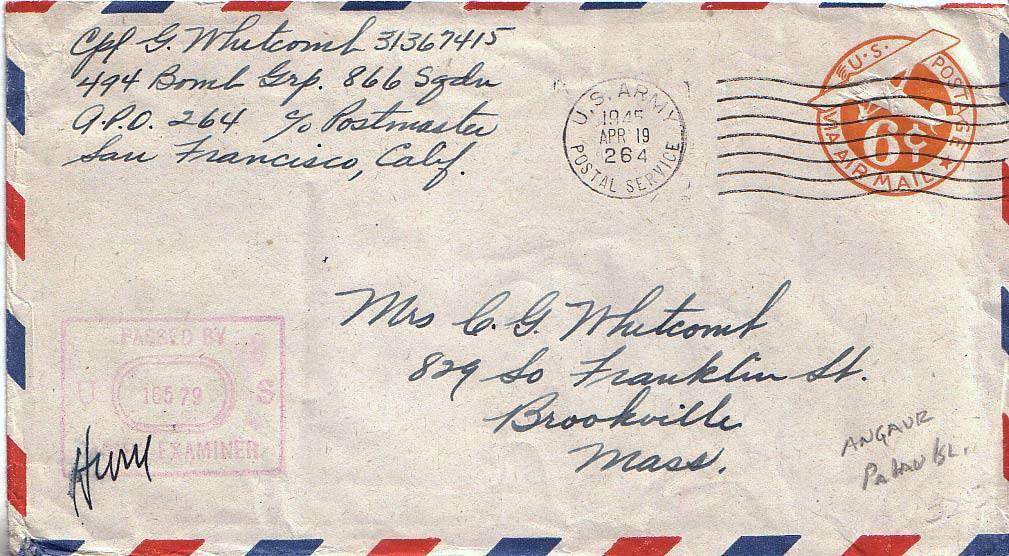 Cpl G. Whitcomb 31367415
494 Bomb Grp. 866 Sqdn
A.P.O. 264 c/o Postmaster
San Francisco, Calif.
U.S. ARMY
1945
APR 19
264
POSTAL SERVICE
U.S. POSTAGE
6¢
VIA AIR MAIL
Mrs C. G. Whitcomb
829 So Franklin St.
Brookville
Mass.
PASSED BY
U 16579 S
EXAMINER
ANGAUR
Palau Isl.